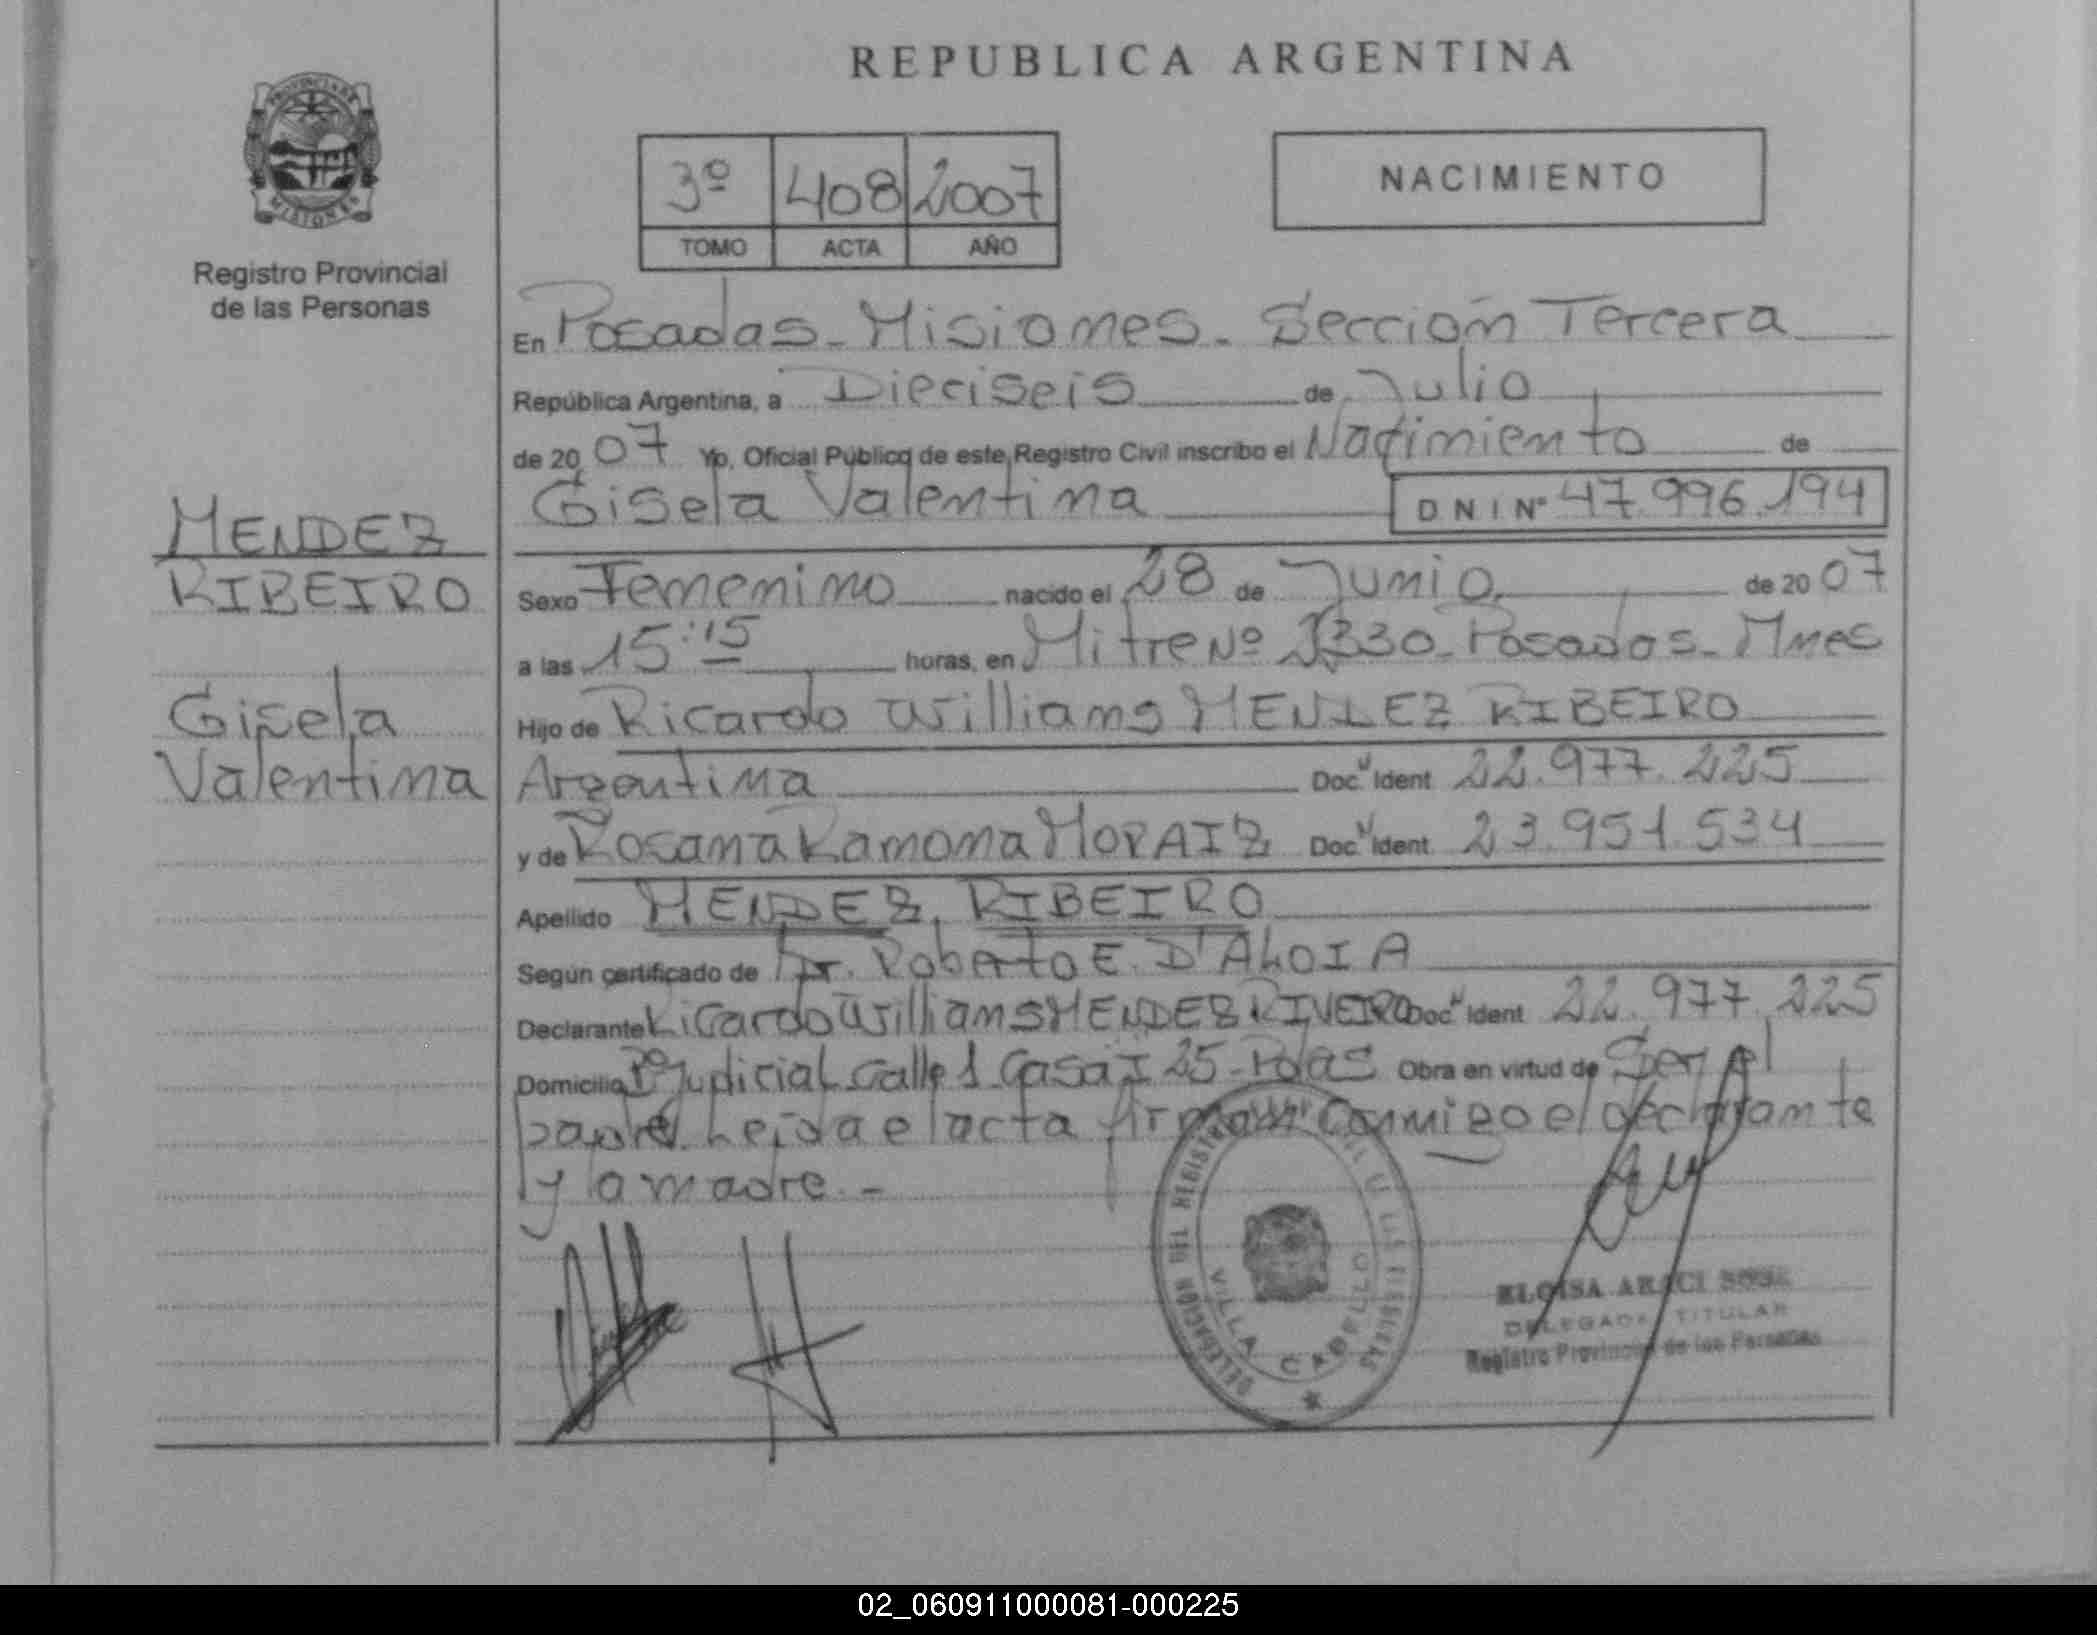 REPUBLICA ARGENTINA
PROVINCIA DE
MISIONES
Registro Provincial
de las Personas
3º 408 2007
TOMO ACTA AÑO
NACIMIENTO
En Posadas - Misiones - Sección Tercera
República Argentina, a Dieciseis de Julio
de 20 07 Yo, Oficial Público de este Registro Civil inscribo el Nacimiento de
Gisela Valentina DNI Nº 47.996.194
MENDEZ
RIBEIRO
Gisela
Valentina
Sexo Femenino nacido el 28 de Junio de 20 07
a las 15:15 horas, en Mitre Nº 2330 - Posadas - Mnes
Hijo de Ricardo Williams MENDEZ RIBEIRO
Argentina Doc. Ident 22.977.225
y de Rosana Ramona MORAIZ Doc. Ident 23.951.534
Apellido MENDEZ RIBEIRO
Según certificado de Dr. Roberto E. D'ALOIA
Declarante Ricardo Williams MENDEZ RIVEIRO Doc. Ident 22.977.225
Domicilio Bº Judicial Calle 1 Casa I 25 - Pdas Obra en virtud de Ser el
padre. Leida el acta firman conmigo el declarante
y la madre. -
DELEGACION DEL REGISTRO
VILLA CABELLO
ELOISA ARACI
DELEGADA TITULAR
Registro Provincial de las Personas
02_060911000081-000225